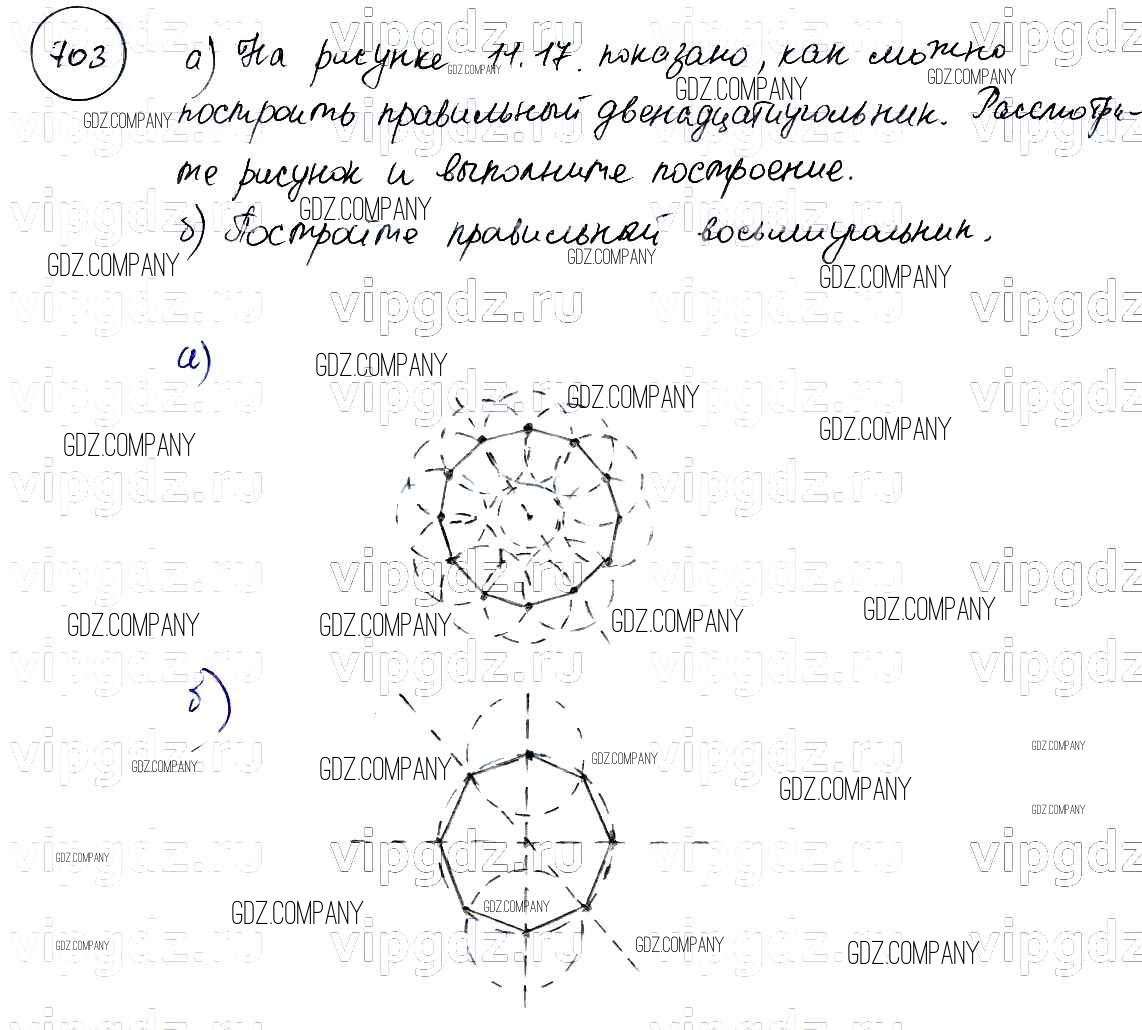 703 а) На рисунке 11.17. показано, как можно
построить правильный двенадцатиугольник. Рассмотри-
те рисунок и выполните построение.
б) Постройте правильный восьмиугольник.
а)
б)
vipgdz.ru
GDZ.COMPANY